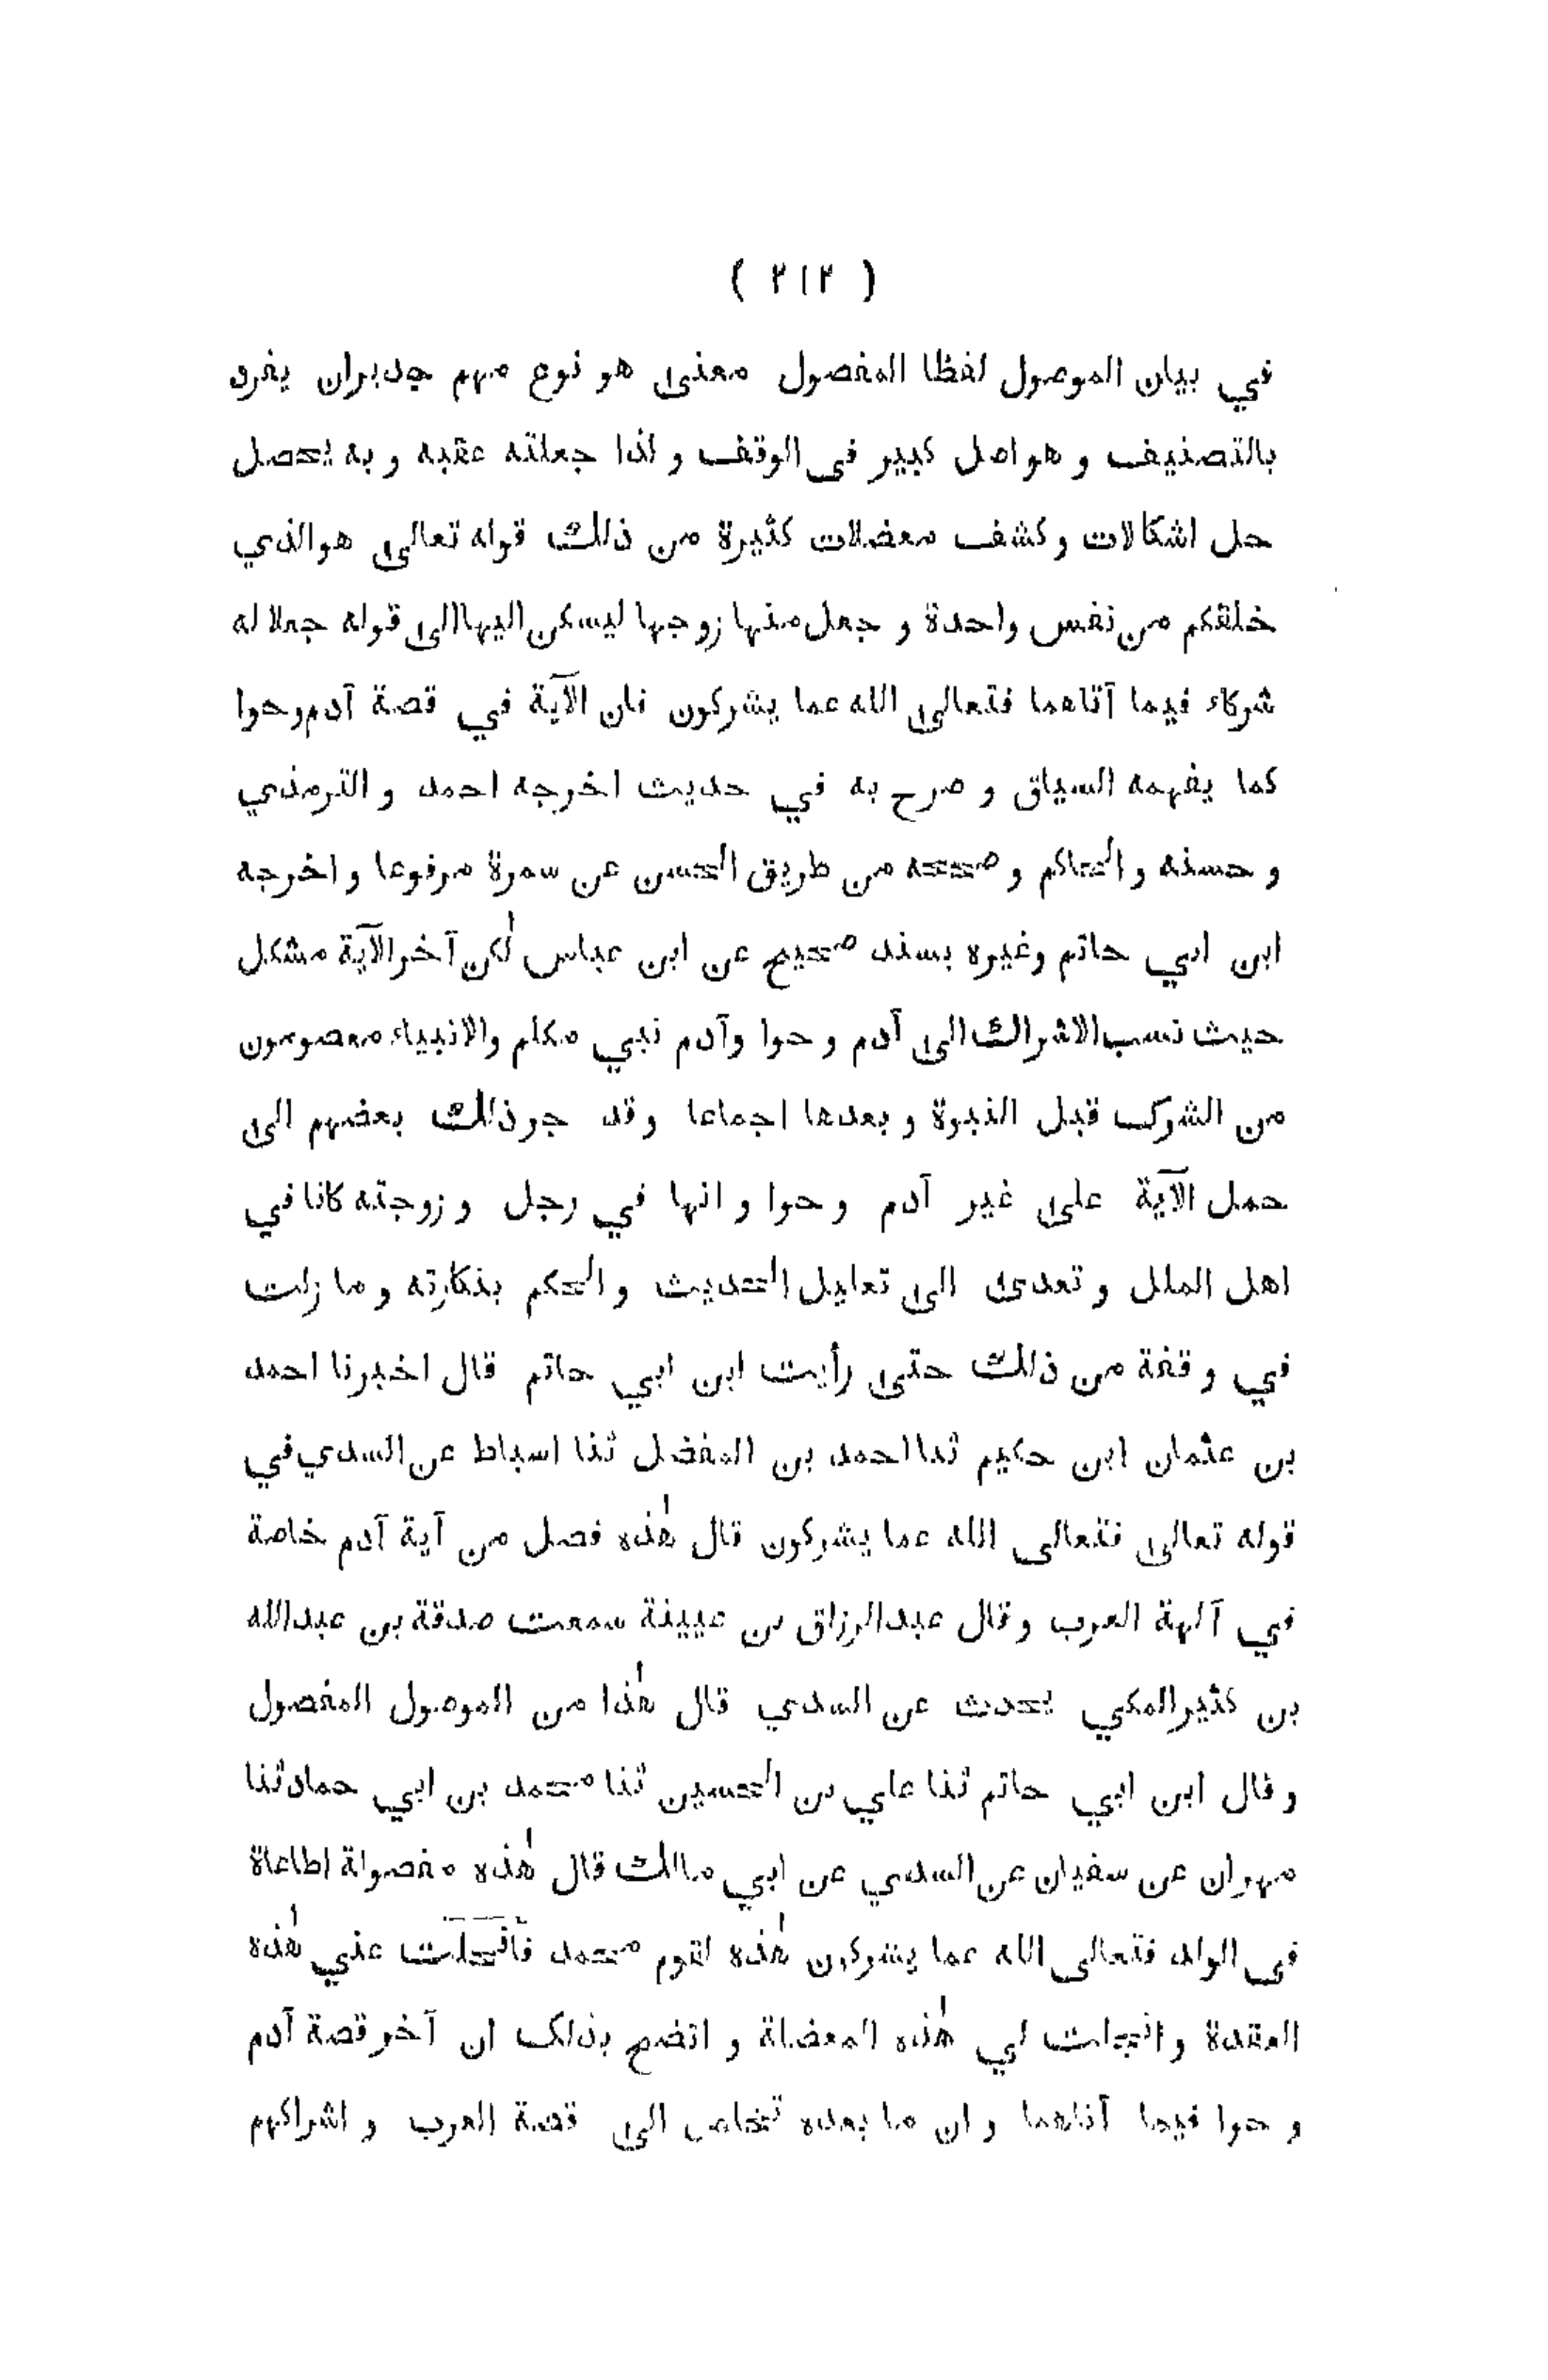 ( ٢١٢ )
في بيان الموصول لفظا المفصول معنى هو نوع مهم جديران يفرد
بالتصنيف و هو اصل كبير في الوقف و لذا جعلته عقبه و به يحصل
حل اشكالات و كشف معضلات كثيرة من ذلك قوله تعالى هو الذي
خلقكم من نفس واحدة و جعل منها زوجها ليسكن اليها الى قوله جعلا له
شركاء فيما آتاهما فتعالى الله عما يشركون فان الآية في قصة آدم وحوا
كما يفهمه السياق و صرح به في حديث اخرجه احمد و الترمذي
و حسنه و الحاكم و صححه من طريق الحسن عن سمرة مرفوعا و اخرجه
ابن ابي حاتم وغيره بسند صحيح عن ابن عباس لٰكن آخر الآية مشكل
حيث نسب الاشراك الى آدم و حوا وآدم نبي مكلم والانبياء معصومون
من الشرك قبل النبوة و بعدها اجماعا و قد جر ذلك بعضهم الى
حمل الآية على غير آدم و حوا و انها في رجل و زوجته كانا في
اهل الملل و تعدى الى تعليل الحديث و الحكم بنكارته و ما زلت
في وقفة من ذلك حتى رأيت ابن ابي حاتم قال اخبرنا احمد
بن عثمان ابن حكيم ثنا احمد بن المفضل ثنا اسباط عن السدي في
قوله تعالى فتعالى الله عما يشركون قال هٰذه فصل من آية آدم خاصة
في آلهة العرب و قال عبدالرزاق بن عيينة سمعت صدقة بن عبدالله
بن كثير المكي يحدث عن السدي قال هٰذا من الموصول المفصول
و قال ابن ابي حاتم ثنا علي بن الحسين ثنا محمد بن ابي حماد ثنا
مهران عن سفيان عن السدي عن ابي مالك قال هٰذه مفصولة اطاعاة
في الولد فتعالى الله عما يشركون هٰذه لقوم محمد فانحلت عني هٰذه
العقدة و انجلت لي هٰذه المعضلة و اتضح بذلك ان آخر قصة آدم
و حوا فيما آتاهما و ان ما بعده تخلص الى قصة العرب و اشراكهم